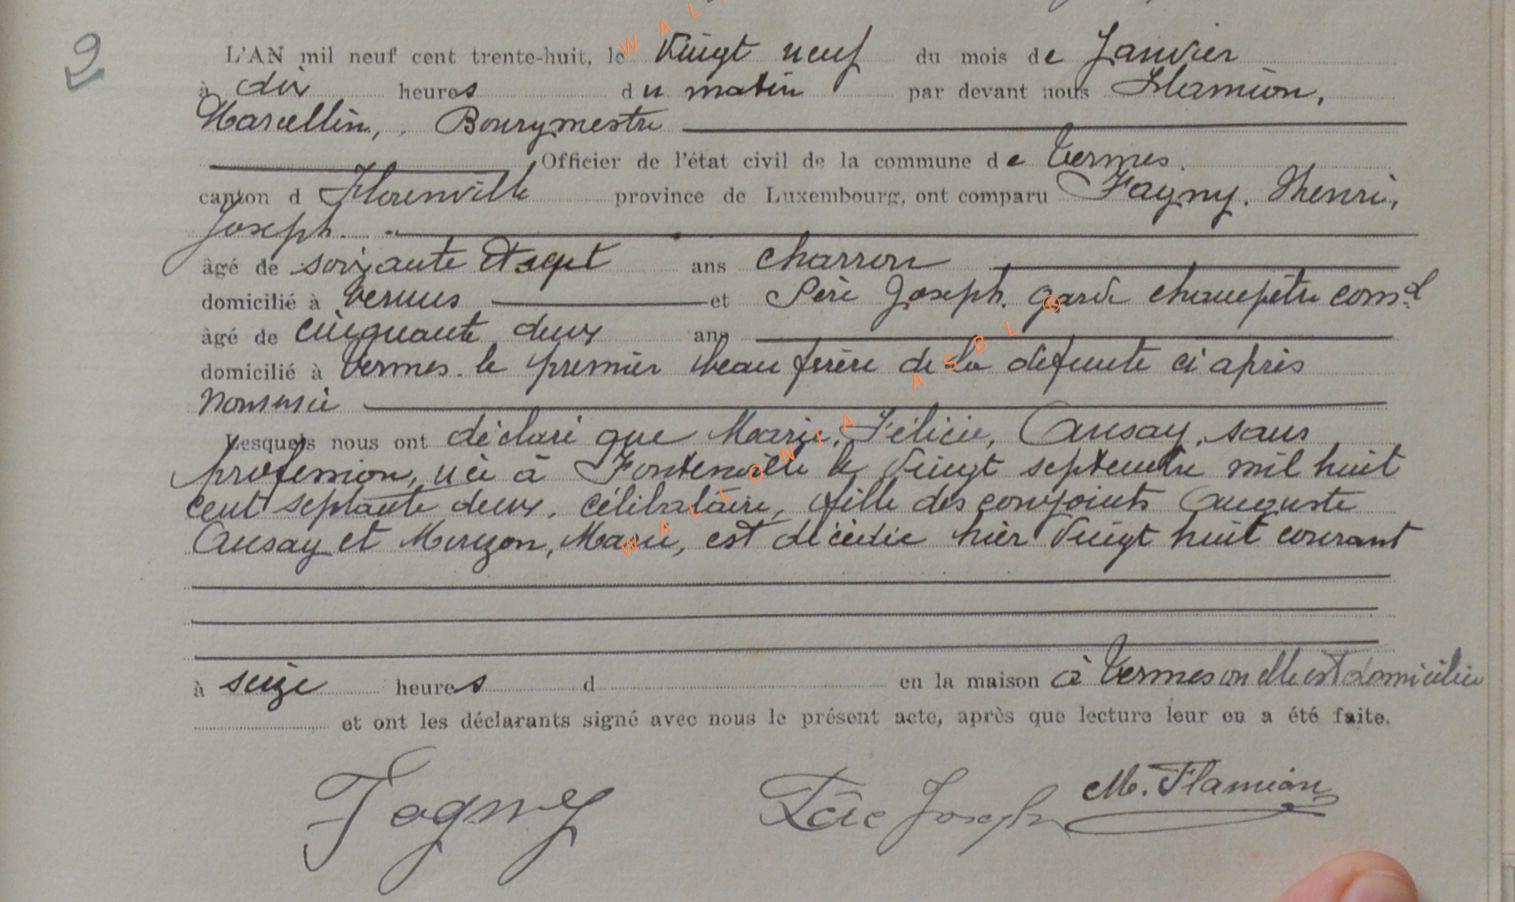 2
L'AN mil neuf cent trente-huit, le vingt neuf du mois de Janvier
à dix heures du matin par devant nous Flamion,
Marcellin, Bourgmestre
Officier de l'état civil de la commune de Termes.
canton d Florenville province de Luxembourg, ont comparu Fagny, Henri,
Joseph.
âgé de soixante et sept ans charron
domicilié à Termes et Père Joseph. garde champêtre comal
âgé de cinquante deux ans
domicilié à Termes. le premier beau frère de la défunte ci après
nommée
Lesquels nous ont déclaré que Marie, Félicie, Ansay, sans
profession, née à Fontenoille le vingt septembre mil huit
cent septante deux. célibataire, fille des conjoints Auguste
Ansay et Marie, est décédée hier vingt huit courant
à seize heures d en la maison à Termes ou elle est domiciliée
et ont les déclarants signé avec nous le présent acte, après que lecture leur en a été faite.
Fagny Père Joseph M. Flamion
WALLONIA ASBL ©
WAL